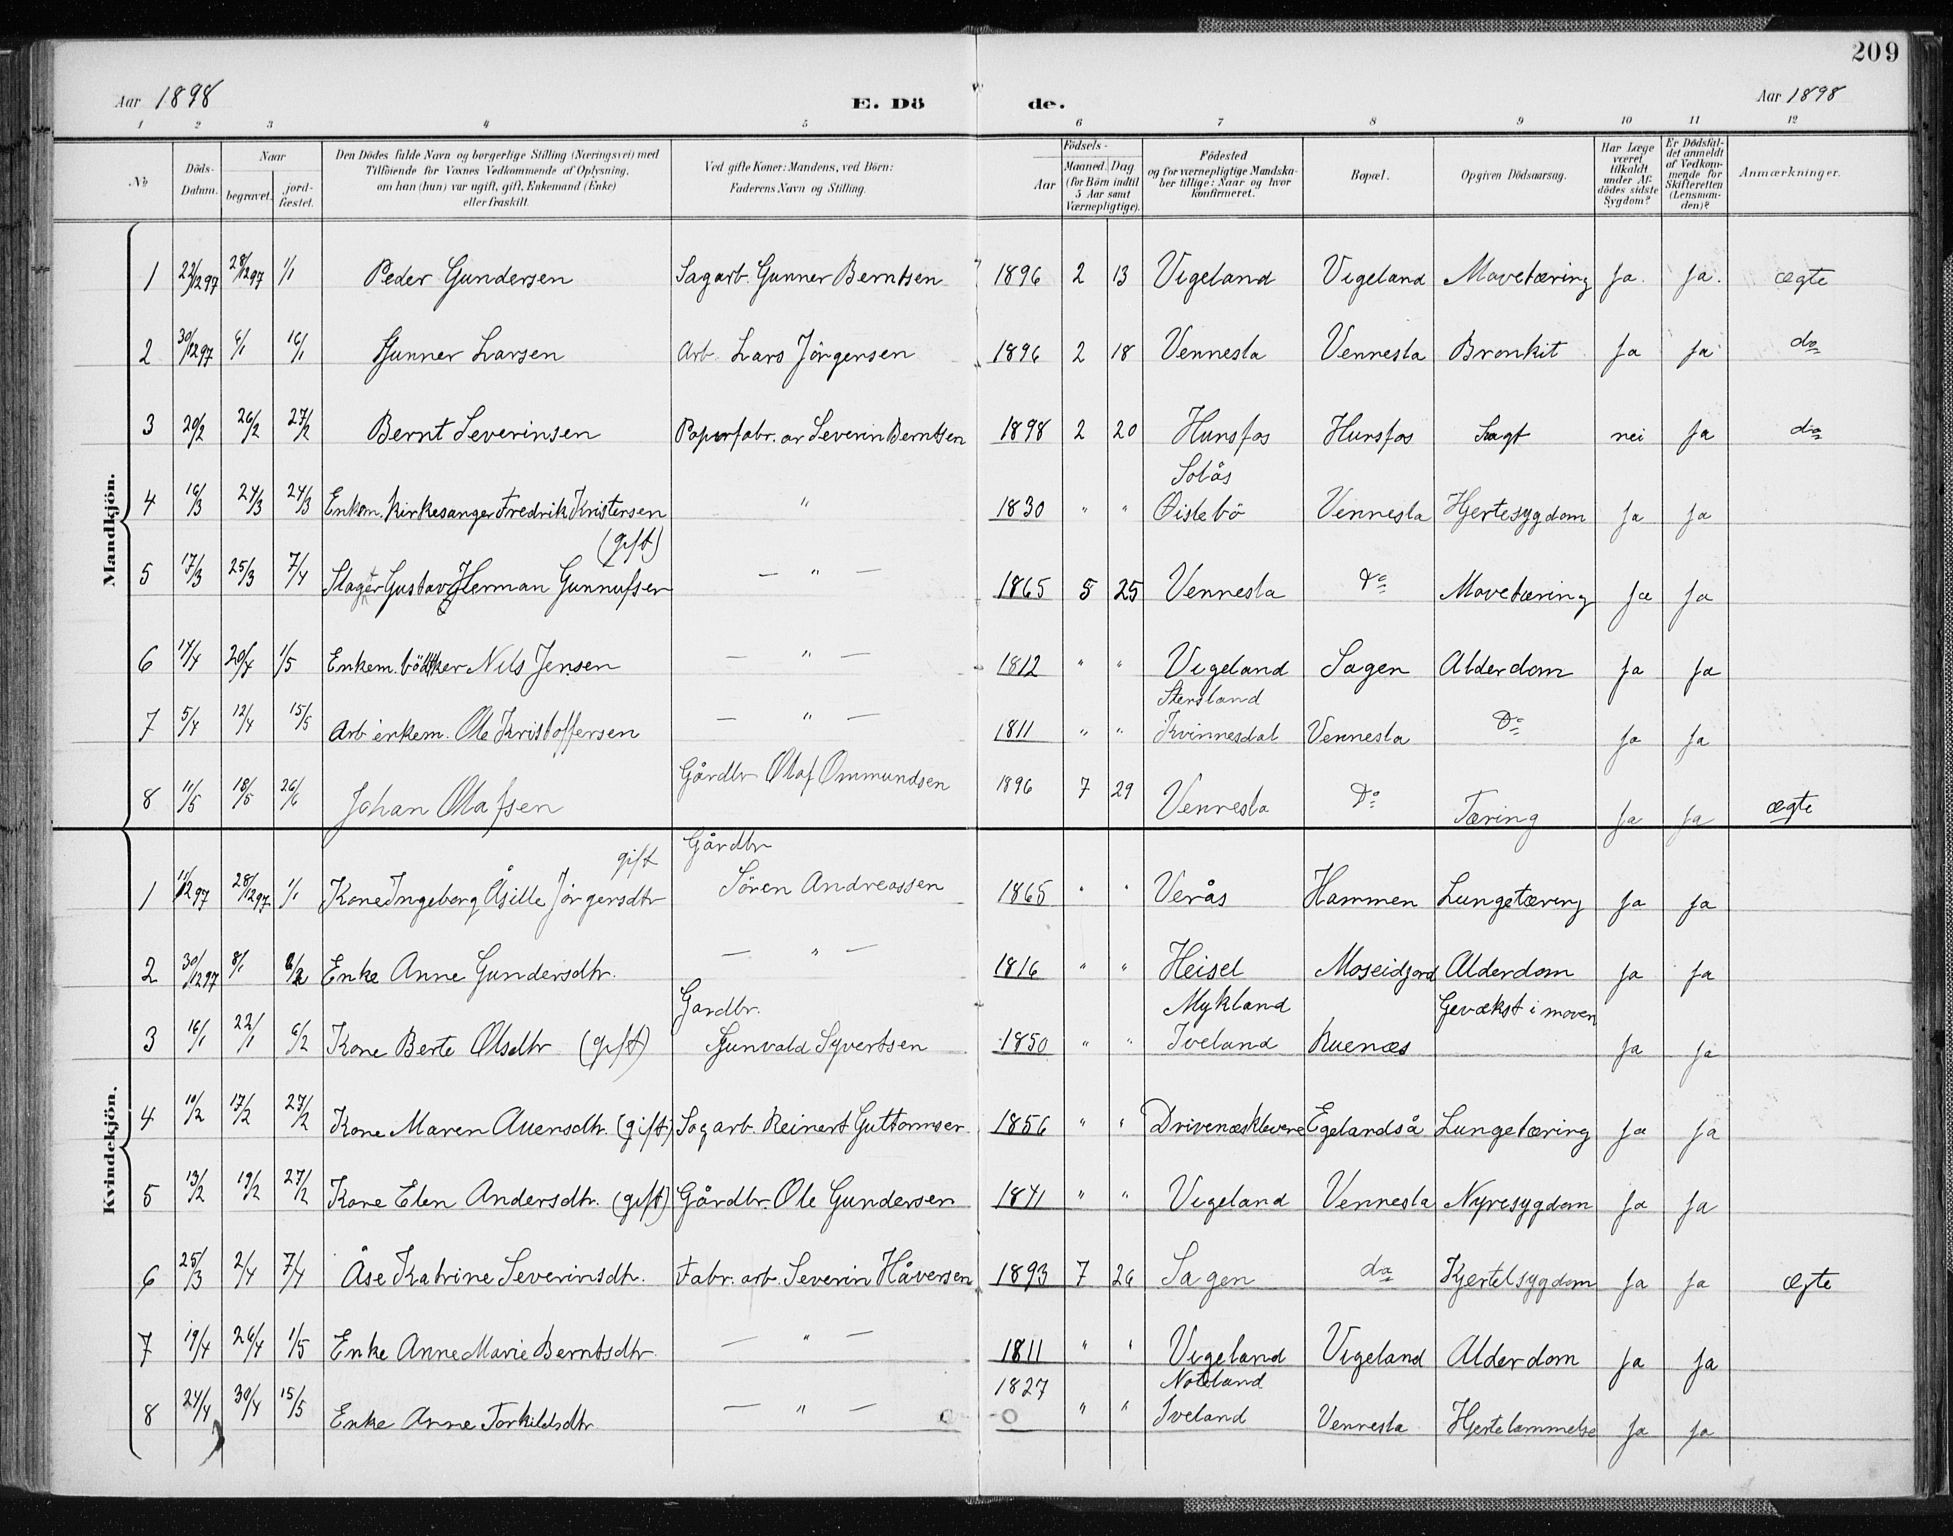 209
Aar 1898 E. Dö de. Aar 1898
1 2 3 4 5 6 7 8 9 10 11 12
No Döds-Datum. Naar begravet. jordfæstet. Den Dödes fulde Navn og borgerlige Stilling (Næringsvei) med Tilföiende for Voxnes Vedkommende af Oplysning, om han (hun) var ugift, gift, Enkemand (Enke) eller fraskilt. Ved gifte Koner: Mandens, ved Börn: Faderens Navn og Stilling. Födsels- Aar Maaned. Dag (for Börn indtil 5 Aar samt Værnepligtige). Födested og for værnepligtige Mandskaber tillige: Naar og hvor konfirmeret. Bopæl. Opgiven Dödsaarsag. Har Læge været tilkaldt under Afdödes sidste Sygdom? Er Dödsfaldet anmeldt af Vedkommende for Skifteretten (Lensmanden)? Anmærkninger.
Mandkjön.
1 22/12 97 28/12 97 1/1 Peder Gundersen Sagarb. Gunner Berntsen 1896 2 13 Vigeland Vigeland Mavetæring Ja. Ja. ægte
2 30/12 97 6/1 16/1 Gunner Larsen Arb. Lars Jörgensen 1896 2 18 Vennesla Vennesla Bronkit Ja Ja do
3 20/2 26/2 27/2 Bernt Severinsen Papirfabr. ar Severin Berntsen 1898 2 20 Hunsfos Hunsfos Svagt nei Ja do
4 16/3 24/3 24/3 Enkem. Kirkesanger Fredrik Kristensen " 1830 " " Solås Øislebö Vennesla Hjertesygdom Ja Ja
(gift)
5 17/3 25/3 7/4 Slagter Gustav Herman Gunnufsen — " — 1865 5 25 Vennesla Do Mavetæring Ja Ja
6 14/4 20/4 1/5 Enkem. bödtker Nils Jensen — " — 1812 " " Vigeland Sagen Alderdom Ja Ja
7 5/4 12/4 15/5 Arb. enkem. Ole Kristoffersen — " — 1811 " " Kvinnesdal Vennesla Do Ja Ja
8 11/5 18/5 26/6 Johan Olafsen Gårdbr Olaf Ommundsen 1896 7 29 Vennesla Do Tæring Ja Ja ægte
Kvindekjön.
1 11/12 97 28/12 97 1/1 Kone Ingeborg Åsille Jörgensdtr gift Gårdbr Sören Andreassen 1865 " " Verås Hammen Lungetæring Ja Ja
2 30/12 97 8/1 Enke Anne Gundersdtr. — " — 1816 " " Heisel Moseidjord Alderdom Ja Ja
3 16/1 22/1 6/2 Kone Berte Olsdtr (gift) Gardbr. Gunvald Syvertsen 1850 " " Mykland Iveland Ruenæs Gevækst i maven Ja Ja
4 10/2 17/2 27/2 Kone Maren Auensdtr. (gift) Sagarb. Reinert Guttormsen 1856 " " Drivenæsklevene Egelandså Lungetæring Ja Ja
5 13/2 19/2 27/2 Kone Elen Andersdtr. (gift) Gårdbr. Ole Gundersen 1841 " " Vigeland Vennesla Nyresygdom Ja Ja
6 25/3 2/4 7/4 Åse Katrine Severinsdtr. Fabr. arb. Severin Håversen 1893 7 26 Sagen do Kjertelsygdom Ja Ja Ægte
7 19/4 26/4 1/5 Enke Anne Marie Berntsdtr — " — 1811 " " Vigeland Vigeland Alderdom Ja Ja
8 24/4 30/4 15/5 Enke Anne Torkildsdtr — " — 1827 " " Noteland Iveland Vennesla Hjertelammelse Ja Ja